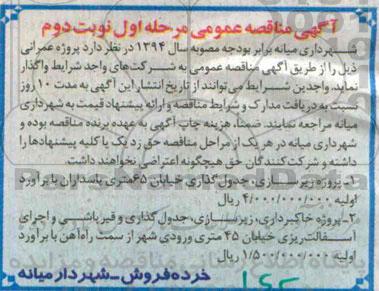 آگهی مناقصه عمومی مرحله اول نوبت دوم
شهرداری میانه برابر بودجه مصوبه سال ۱۳۹۴ در نظر دارد پروژه عمرانی
ذیل را از طریق آگهی مناقصه عمومی به شرکت‌های واجد شرایط واگذار
نماید، واجدین شرایط می‌توانند از تاریخ انتشار این آگهی به مدت ۱۰ روز
نسبت به دریافت مدارک و شرایط مناقصه و ارائه پیشنهاد قیمت به شهرداری
میانه مراجعه نمایند. ضمناً، هزینه چاپ آگهی به عهده برنده مناقصه بوده و
شهرداری میانه در هر یک از مراحل مناقصه حق رد یک یا کلیه پیشنهادها را
داشته و شرکت‌کنندگان حق هیچگونه اعتراضی نخواهند داشت.
۱-پروژه زیرسازی، جدول گذاری خیابان ۶۵متری پاسداران با برآورد
اولیه ۴/۰۰۰/۰۰۰/۰۰۰ ریال
۲-پروژه خاکبرداری، زیرسازی، جدول گذاری و قیرپاشی و اجرای
آسفالت‌ریزی خیابان ۴۵ متری ورودی شهر از سمت راه‌آهن با برآورد
اولیه ۱/۵۰۰/۰۰۰/۰۰۰ ریال
خرده‌فروش-شهردار میانه